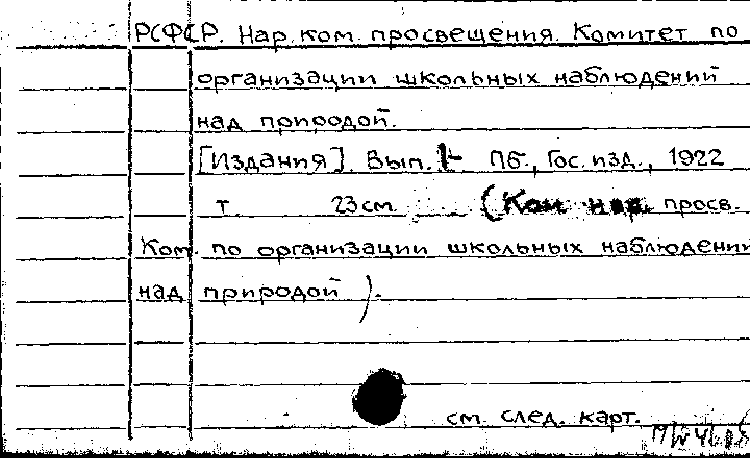 РСФСР. Нар. ком. просвещения. Комитет по
организации школьных наблюдений
над природой.
[Издания]. Вып. 1- Пб., Гос. изд., 1922
т. 23 см. (Ком. нар. просв.
Ком. по организации школьных наблюдений
над природой).
см. след. карт.